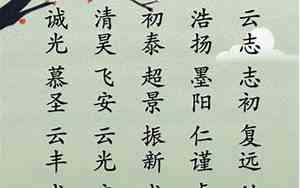 云志 志初 复远
浩扬 墨阳 仁谨
初泰 超景 振新
清昊 飞安 云光
诚光 慕圣 云丰